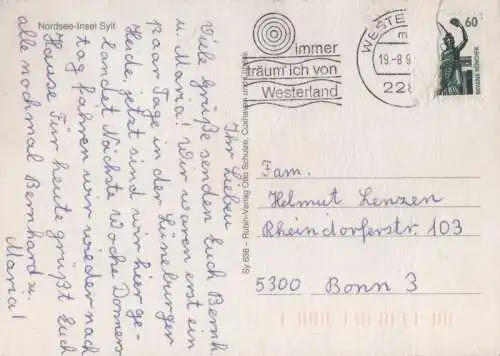 Nordsee-Insel Sylt
Ihr Lieben
Viele Grüße senden Euch Bernh
u. Maria! Wir waren erst ein
paar Tage in der Lüneburger
Heide jetzt sind wir hier ge-
landet Nächste Woche Donners
tag fahren wir wieder nach
Hause Für heute grüßt Euch
alle nochmal Bernhard u.
Maria!
Sy 698 – Rubin-Verlag Otto Schulze, Cuxhaven
immer
träum' ich von
Westerland
WESTE
m
19.-8.9
228
60
Fam.
Helmut Lenzen
Rheindorferstr. 103
5300 Bonn 3